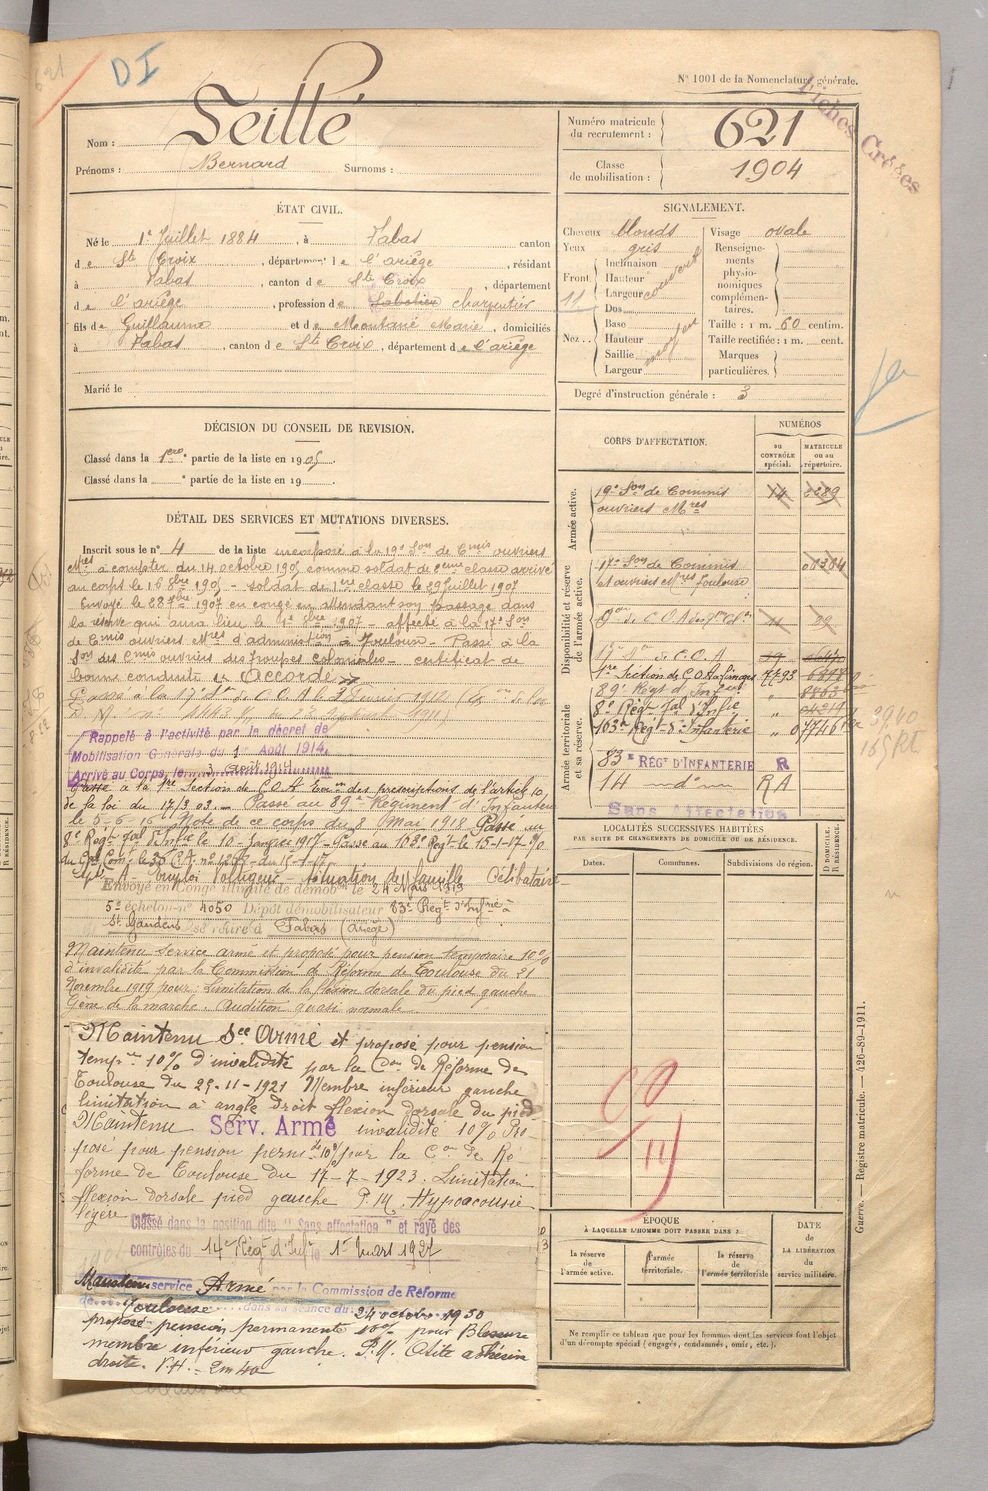 DI
N° 1001 de la Nomenclature générale.
Fiches Créées
Nom : Seillé
Prénoms : Bernard Surnoms :
Numéro matricule du recrutement : 621
Classe de mobilisation : 1904
ÉTAT CIVIL.
Né le 1er Juillet 1884, à Fabas canton
de Ste Croix, département de l'ariège, résidant
à Fabas, canton de Ste Croix, département
de l'ariège, profession de charpentier
fils de Guillaume et de Montané Marie, domiciliés
à Fabas, canton de Ste Croix, département de l'ariège
Marié le
SIGNALEMENT.
Cheveux blonds Visage ovale
Yeux gris Renseignements physionomiques complémentaires.
Front Inclinaison Hauteur Largeur couvert
11
Nez Dos Base Hauteur Saillie Largeur moyen
Taille : 1 m. 60 centim.
Taille rectifiée : 1 m. cent.
Marques particulières.
Degré d'instruction générale : 3
DÉCISION DU CONSEIL DE REVISION.
Classé dans la 1ère partie de la liste en 1905
Classé dans la e partie de la liste en 19
CORPS D'AFFECTATION.
NUMÉROS
au CONTRÔLE spécial.
MATRICULE ou au répertoire.
Armée active.
19e Son de Commis 14 2289
ouvriers Mres
Disponibilité et réserve de l'armée active.
17e Son de Commis 01384
et ouvriers Mres Toulouse
17e Son de C.O.A
Armée territoriale et sa réserve.
1re Section de C.O.A Limoges 7793
89e Régt d'Infie
8e Régt d'Infie " 04219
103e Régt d'Infanterie "
83e RÉGT D'INFANTERIE R
14 d° RA
Sans Affectation
DÉTAIL DES SERVICES ET MUTATIONS DIVERSES.
Inscrit sous le n° 4 de la liste incorporé à la 19e Son de Cmis ouvriers
Mres à compter du 14 octobre 1905 comme soldat de 2ème classe arrivé
au corps le 16 8bre 1905 - soldat de 1ère classe le 29 Juillet 1907
Envoyé le 28 7bre 1907 en congé en attendant son passage dans
la réserve qui aura lieu le 1er 8bre 1907 - affecté à la 17e Son
de Cmis ouvriers Mres d'administion à Toulouse - Passé à la
Son des Cmis ouvriers des troupes coloniales - certificat de
bonne conduite "Accordé"
Passé à la 17e Son de C.O.A le Février 1912
Rappelé à l'activité par le décret de
Mobilisation Générale du 1er Août 1914.
Arrivé au Corps, le 3 Août 1914
Passé à la 1re Section de C.O.A. des prescriptions de l'article 10
de la loi du 17/8.03. - Passé au 89e Régiment d'Infanterie
le 5-6-16 Note de ce corps du 8 Mai 1918 Passé au
8e Régt d'Infie le 10 Janvier 1917 - Passé au 103e Régt le 15-1-17
Envoyé en Congé illimité de démobon le 24 Mars 1919
situation de famille Célibataire
5e échelon n° 4050 Dépôt démobilisateur 83e Régt d'Infrie à
St Gaudens se retire à Fabas (Ariège)
Maintenu service armé et proposé pour pension temporaire 10%
d'invalidité par la Commission de Réforme de Toulouse du 21
Novembre 1919 pour : Limitation de la flexion dorsale du pied gauche
Gêne de la marche. Audition quasi normale.
Maintenu See Armé et proposé pour pension
tempre 10% d'invalidité par la Con de Réforme de
Toulouse du 25-11-1921 Membre inférieur gauche
limitation à angle droit flexion dorsale du pied
Maintenu Serv. Armé invalidité 10% Pro-
posé pour pension perm. de 10% par la Con de Ré
forme de Toulouse du 17-7-1923. Limitation
flexion dorsale pied gauche P.M. Hypoacousie
légère
Classé dans la position dite "Sans affectation" et rayé des
contrôles du 14e Régt d'Infie le 1er Mars 1927
Maintenu service Armé par la Commission de Réforme
de Toulouse dans sa séance du 24 octobre 1930
proposé pension permanente 10% pour Blessure
membre inférieur gauche. P.M. Otite adhésive
droite. V.H. - 2m40
LOCALITÉS SUCCESSIVES HABITÉES
PAR SUITE DE CHANGEMENTS DE DOMICILE OU DE RÉSIDENCE.
Dates. Communes. Subdivisions de région. D DOMICILE. R RÉSIDENCE.
ÉPOQUE
À LAQUELLE L'HOMME DOIT PASSER DANS :
la réserve de l'armée active. l'armée territoriale. la réserve de l'armée territoriale
DATE de LA LIBÉRATION du service militaire.
Ne remplir ce tableau que pour les hommes dont les services font l'objet
d'un décompte spécial (engagés, condamnés, omis, etc.).
Guerre. — Registre matricule. — 426-89-1911.